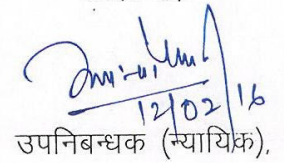 12/02/16
उपनिबन्धक (न्यायिक),